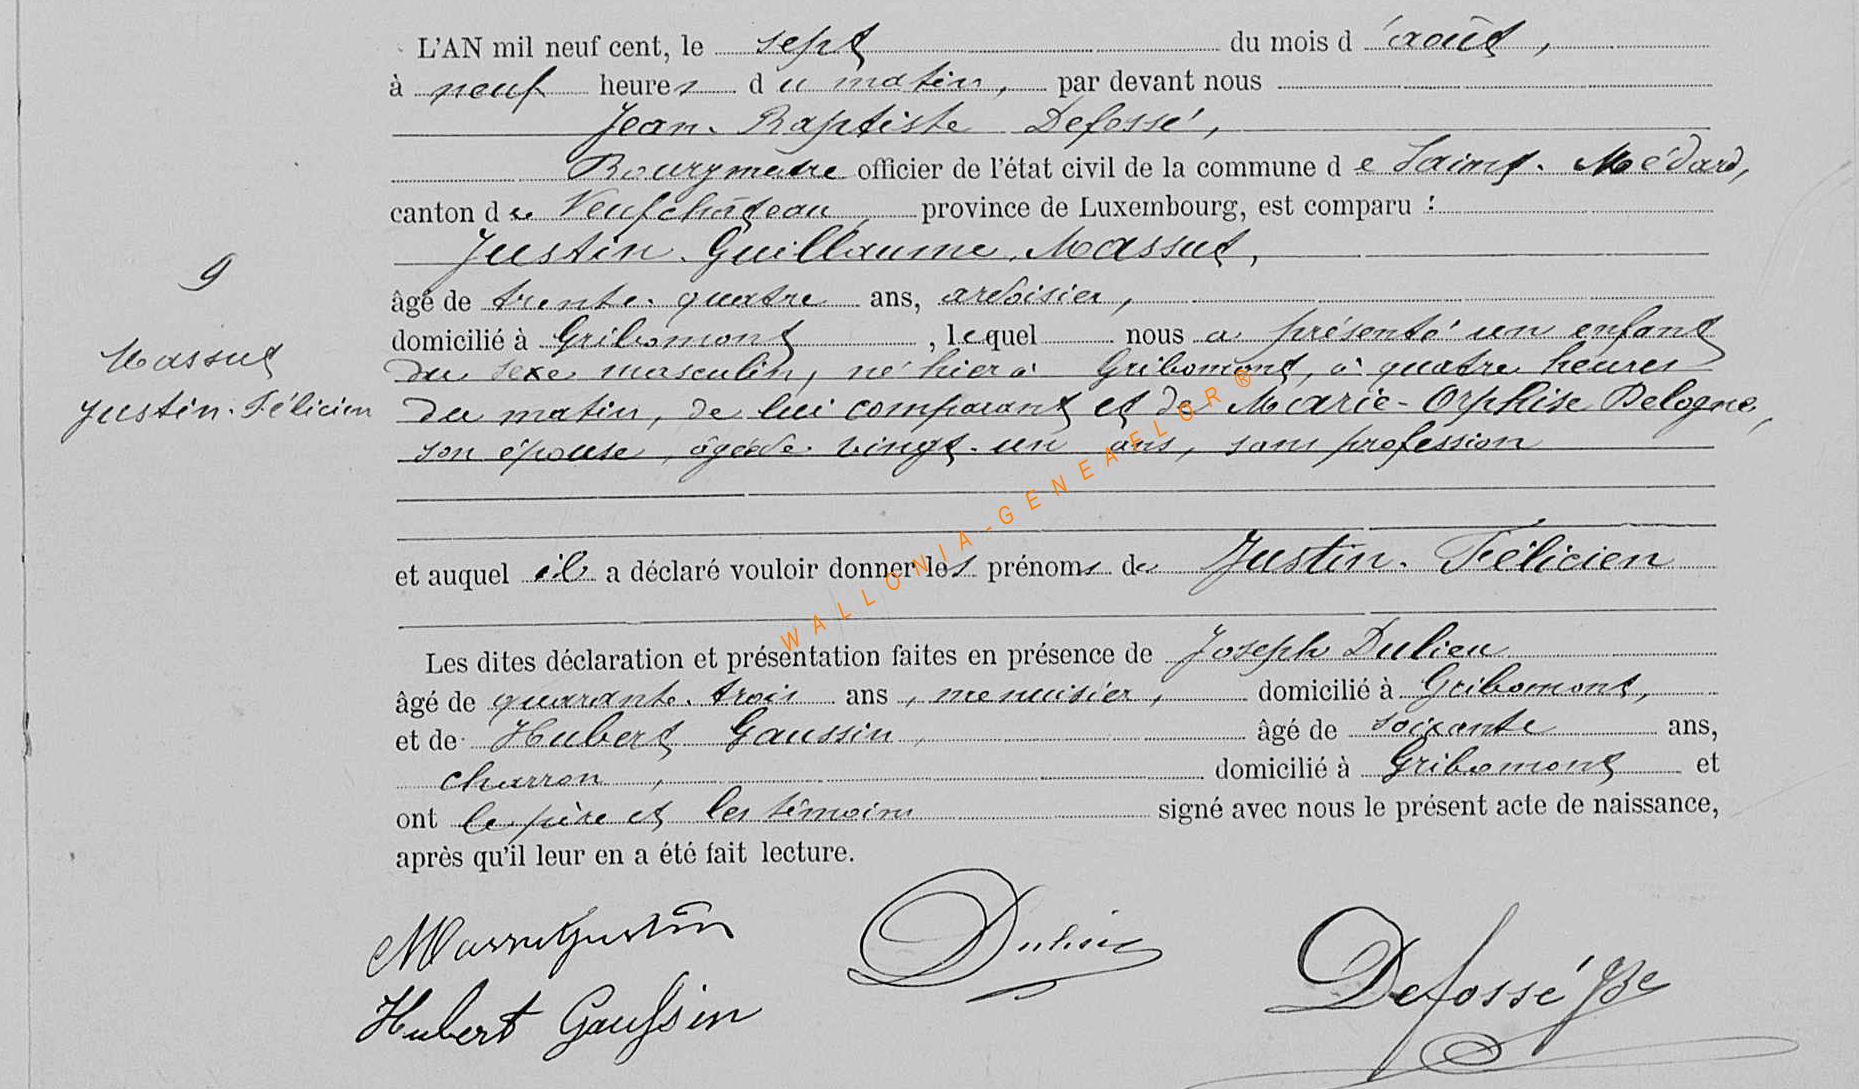 L'AN mil neuf cent, le sept du mois d'août,
à neuf heures du matin, par devant nous
Jean-Baptiste Defossé,
Bourgmestre officier de l'état civil de la commune de Saint-Médard,
canton de Neufchâteau, province de Luxembourg, est comparu :
Justin-Guillaume Massut,
âgé de trente-quatre ans, ardoisier,
domicilié à Gribomont, lequel nous a présenté un enfant
du sexe masculin, né hier à Gribomont, à quatre heures
du matin, de lui comparant et de Marie-Orphise Delogne,
son épouse, âgée de vingt-un ans, sans profession
et auquel il a déclaré vouloir donner les prénoms de Justin-Félicien
Les dites déclaration et présentation faites en présence de Joseph Dulieu
âgé de quarante-trois ans, menuisier, domicilié à Gribomont,
et de Hubert Gaussin, âgé de soixante ans,
charron, domicilié à Gribomont et
ont le père et les témoins signé avec nous le présent acte de naissance,
après qu'il leur en a été fait lecture.
9
Massut
Justin-Félicien
Massut Justin
Dulieu
Defossé JBte
Hubert Gaussin
WALLONIA-GENEAFLOR®